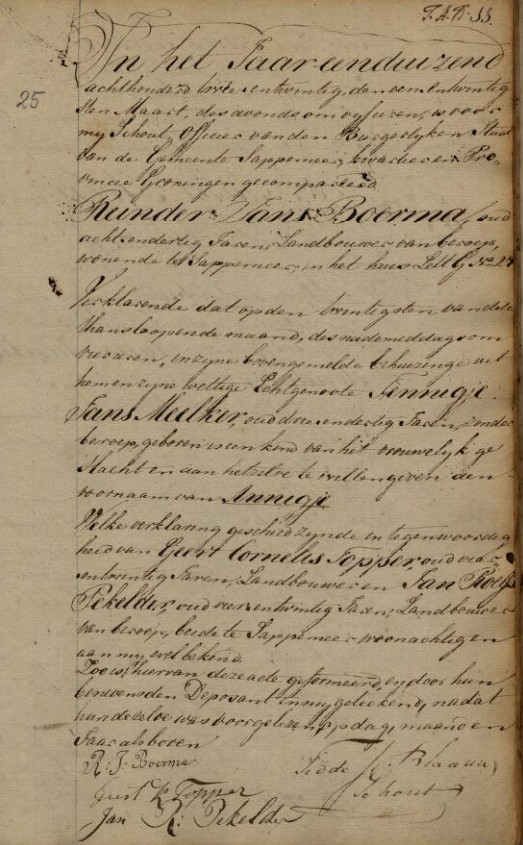 F. A. D. SS.
25
In het Jaar eenduizend
achthonderd drie entwintig, den eenentwintig
sten Maart, des avonds om vyf uren, is voor
my Schout, Officier van den Burgerlyken Staat
van de Gemeente Sappemeer, kwartier en Pro-
vincie Groningen gecompareerd
Reinder Jans Boerma, oud
achtendertig Jaren, Landbouwer van beroep,
wonende te Sappemeer, in het huis Lett G No 27
Verklarende dat op den twintigsten van deze
thans loopende maand, des nademiddags om
vier uren, in zyne bovengemelde behuizinge uit
hem en zyne wettige Echtgenoote Jennigje
Jans Meelker, oud drie endertig Jaren, zonder
beroep, geboren is een kind van het vrouwelyk ge
slacht en aan hetzelve te willen geven den
voornaam van Annigje
Welke verklaring geschied zynde in tegenwoordig
heid van Geert Cornelis Topper, oud vier
entwintig Jaren, Landbouwer en Jan Roelfs
Pekelder, oud vier entwintig Jaren, Landbouwer
van beroep, beide te Sappemeer woonachtig en
aan my wel bekend.
Zoo is hiervan deze acte geformeerd, en door hun
benevens den Deposant en my geteekend, nadat
hun dezelve was voorgelezen, op dag, maand en
Jaar als boven
R. J. Boerma
Geert K Topper
Jan R. Pekelder
Schout